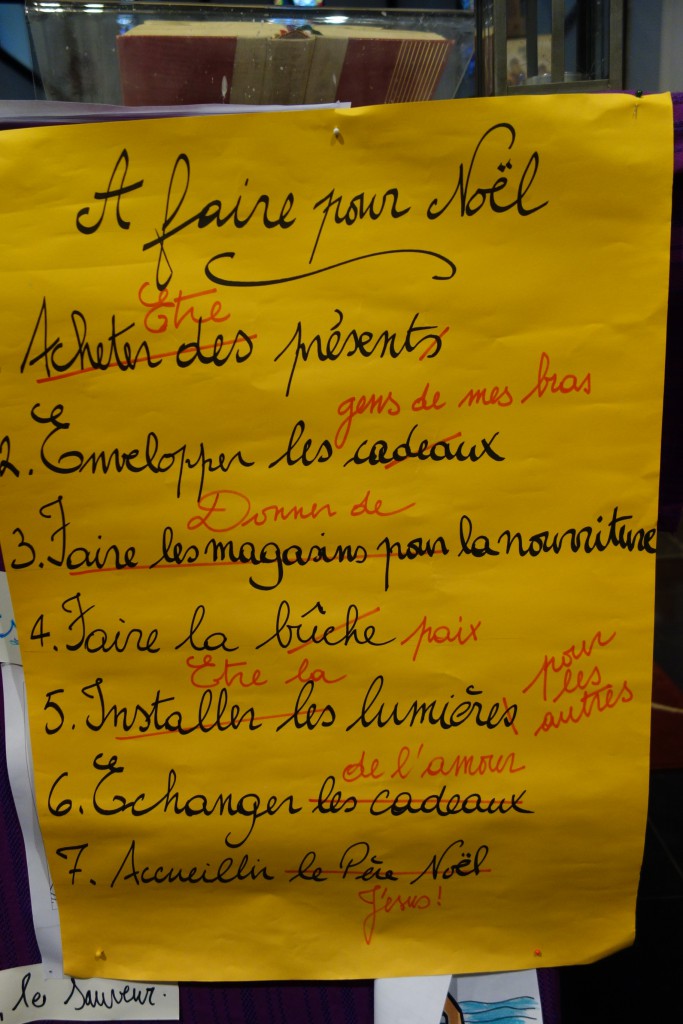 A faire pour Noël
Etre
Acheter des présents
gens de mes bras
2. Envelopper les cadeaux
Donner de
3. Faire les magasins pour la nourriture
4. Faire la bûche paix
Etre la
pour
les
autres
5. Installer les lumières
de l'amour
6. Echanger les cadeaux
7. Accueillir le Père Noël
Jésus!
le Sauveur.